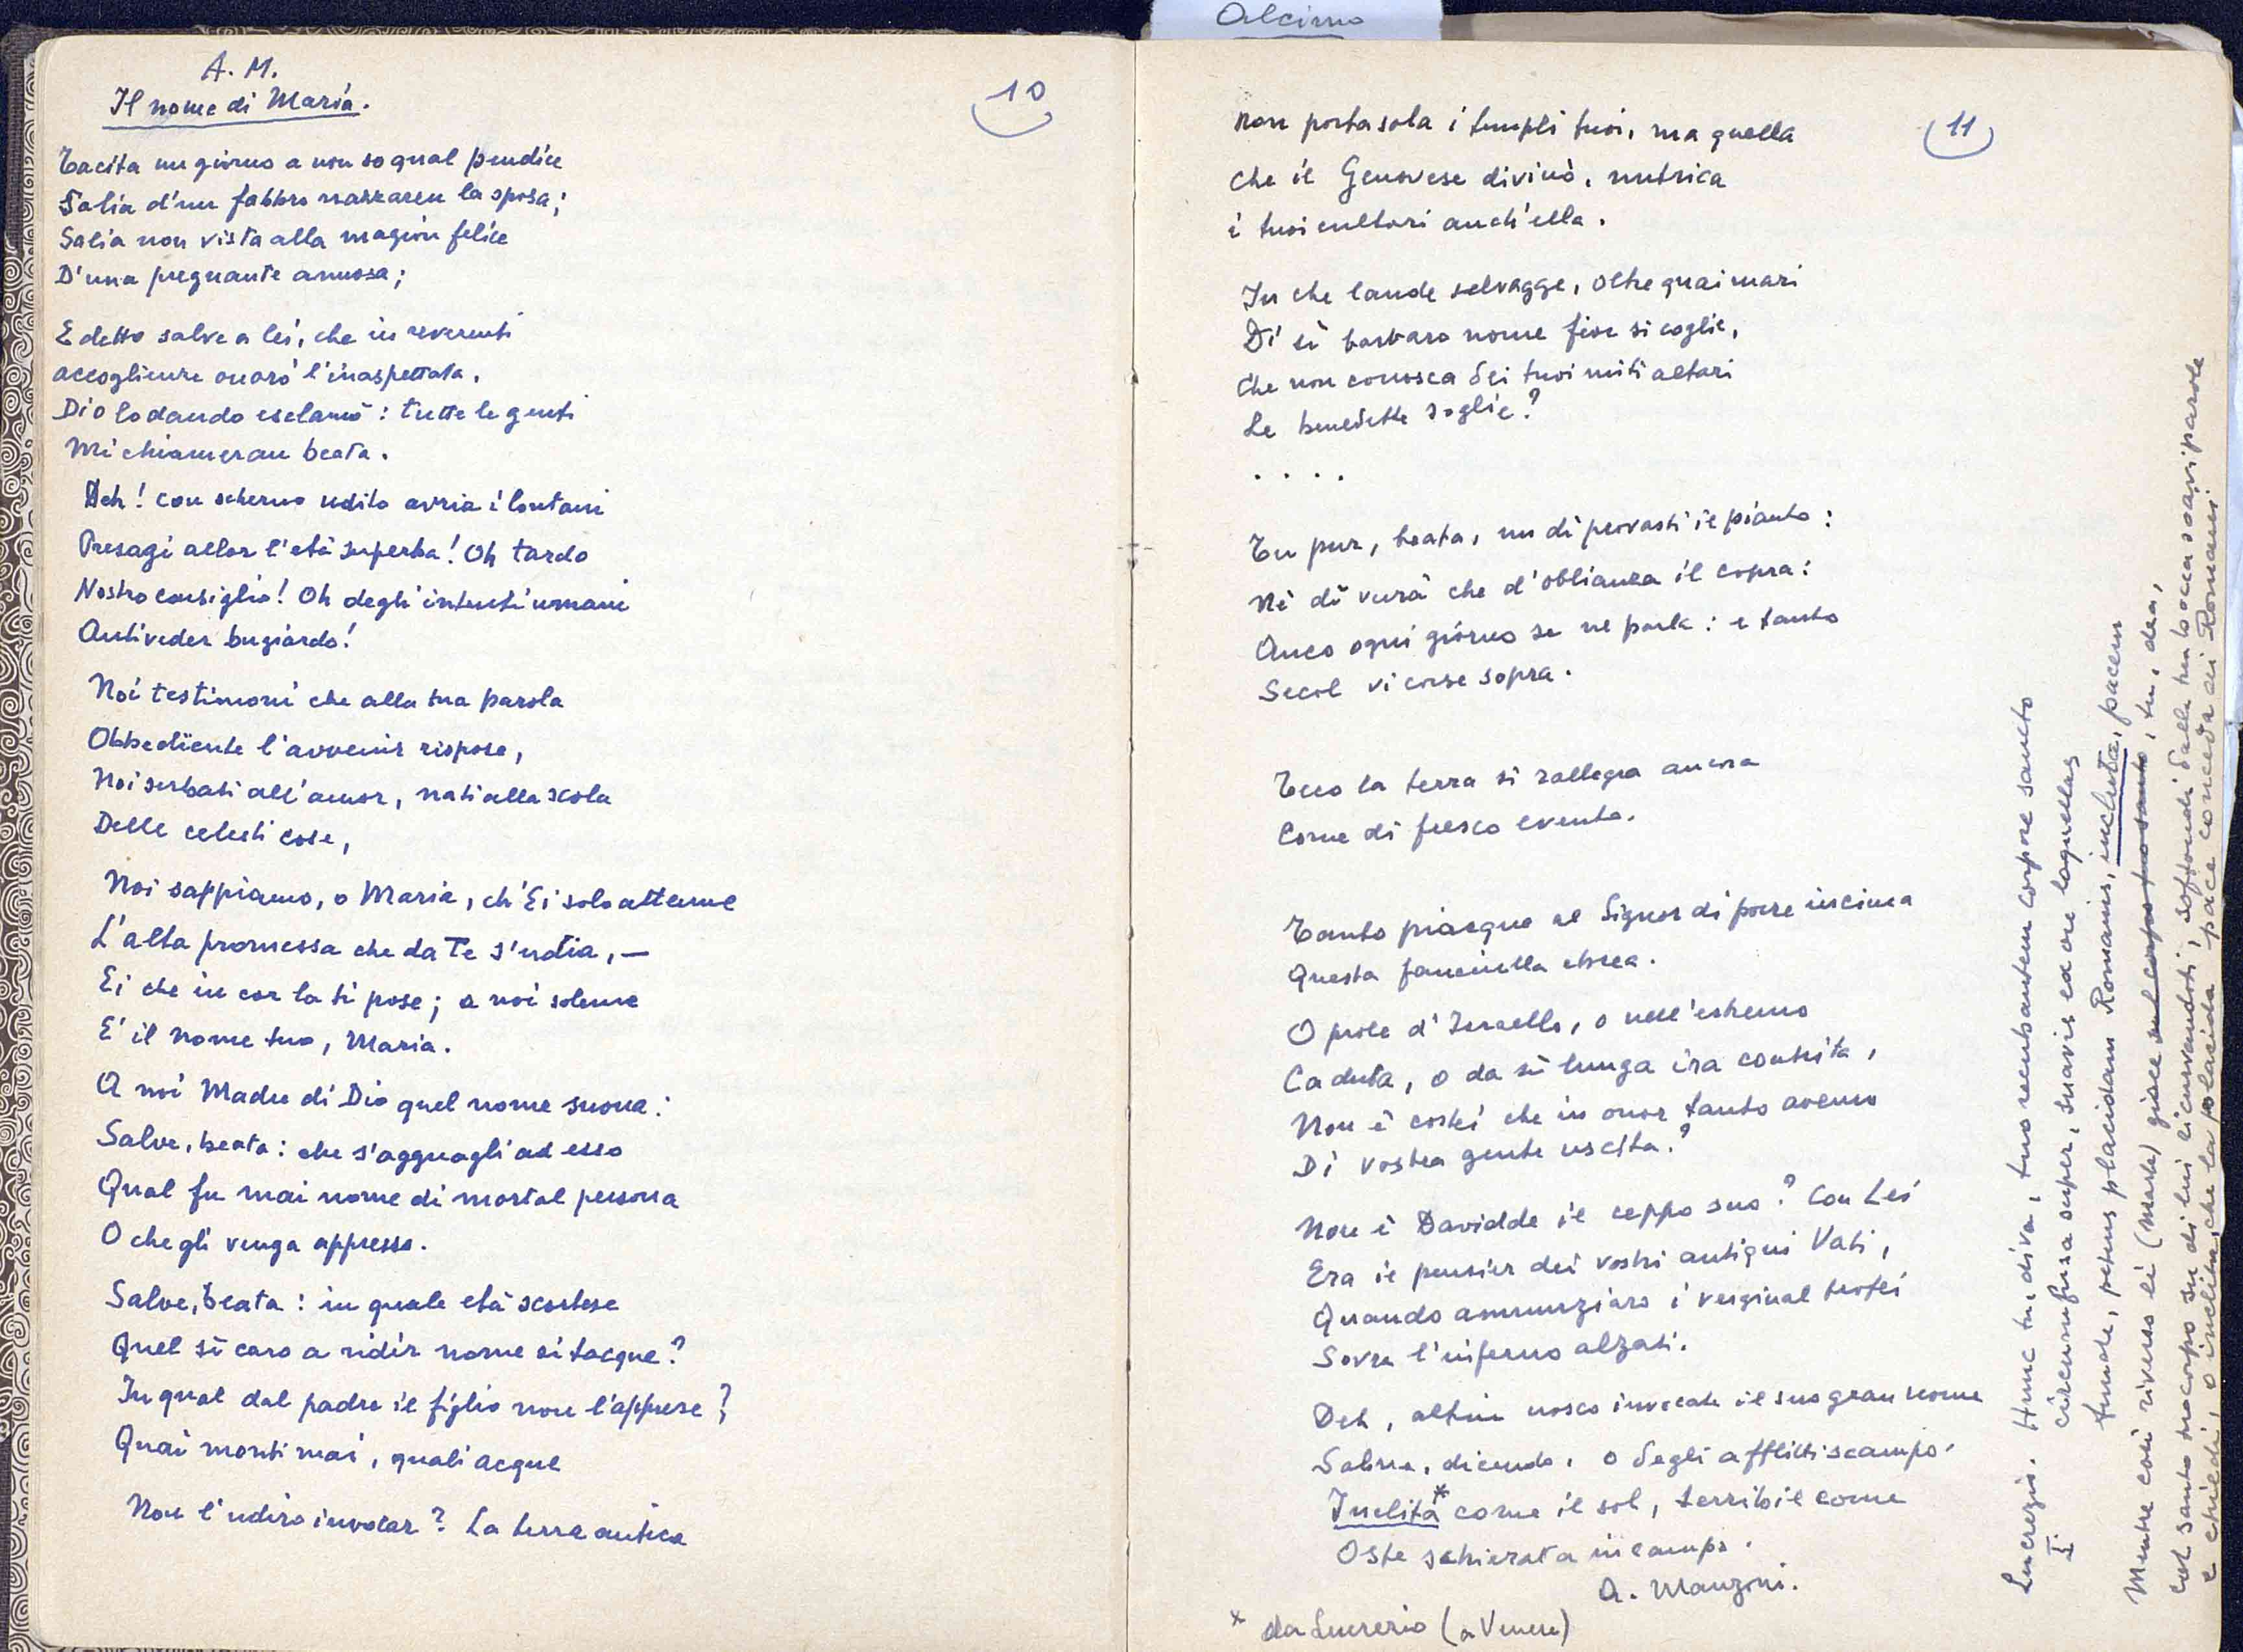 Alcimo
A. M.
Il nome di Maria.
10
Tacita un giorno a non so qual pendice
Salia d'un fabbro nazzaren la sposa;
Salia non vista alla magion felice
D'una pregnante annosa;
E detto salve a lei, che in reverenti
accoglienze onorò l'inaspettata,
Dio lodando esclamò: tutte le genti
Mi chiameran beata.
Deh! con scherno udito avria i lontani
Presagi allor l'età superba! Oh tardo
Nostro consiglio! Oh degli intenti umani
Antiveder bugiardo!
Noi testimoni che alla tua parola
Obbedïente l'avvenir rispose,
Noi serbati all'amor, nati alla scola
Delle celesti cose,
Noi sappiamo, o Maria, ch'Ei solo attenne
L'alta promessa che da Te s'udia, —
Ei che in cor la ti pose; a noi solenne
E' il nome tuo, Maria.
A noi Madre di Dio quel nome suona:
Salve, beata: che s'agguagli ad esso
Qual fu mai nome di mortal persona
O che gli venga appresso.
Salve, beata: in quale età scortese
Quel sì caro a ridir nome si tacque?
In qual dal padre il figlio non l'apprese?
Quai monti mai, quali acque
Non l'udiro invocar? La terra antica
11
non porta sola i templi tuoi, ma quella
che il Genovese divinò, nutrica
i tuoi cultori anch'ella.
In che lande selvagge, oltre quai mari
Di sì barbaro nome fior si coglie,
Che non conosca dei tuoi miti altari
Le benedette soglie?
. . . .
Tu pur, beata, un dì provasti il pianto:
Nè dì verrà che d'oblianza il copra:
Anco ogni giorno se ne parla: e tanto
Secol vi corse sopra.
Ecco la terra si rallegra ancora
Come di fresco evento.
Tanto piacque al Signor di porre in cima
Questa fanciulla ebrea.
O prole d'Israello, o nell'estremo
Caduta, o da sì lunga ira contrita,
Non è costei che in onor tanto avemo
Di vostra gente uscita?
Non è Davidde il ceppo suo? Con Lei
Era il pensier dei vostri antiqui Vati,
Quando annunziaro i verginal trofei
Sovra l'inferno alzati.
Deh, alfin nosco invocate il suo gran nome
Salve, dicendo, o degli afflitti scampo.
Inclita* come il sol, terribil come
Oste schierata in campo.
A. Manzoni.
* da Lucrezio (a Venere)
Lucrezio. Hunc tu, diva, tuo recubantem corpore sancto
I. circumfusa super, suavis ex ore loquellas
funde, petens placidam Romanis, incluta, pacem
Mentre così riverso lì (Marte) giace sul corpo tuo santo, tu, dea,
col santo tuo corpo su di lui li curvandoti, soffondi dalla tua bocca soavi parole
e chiedi, o inclita, che la placida pace conceda ai Romani